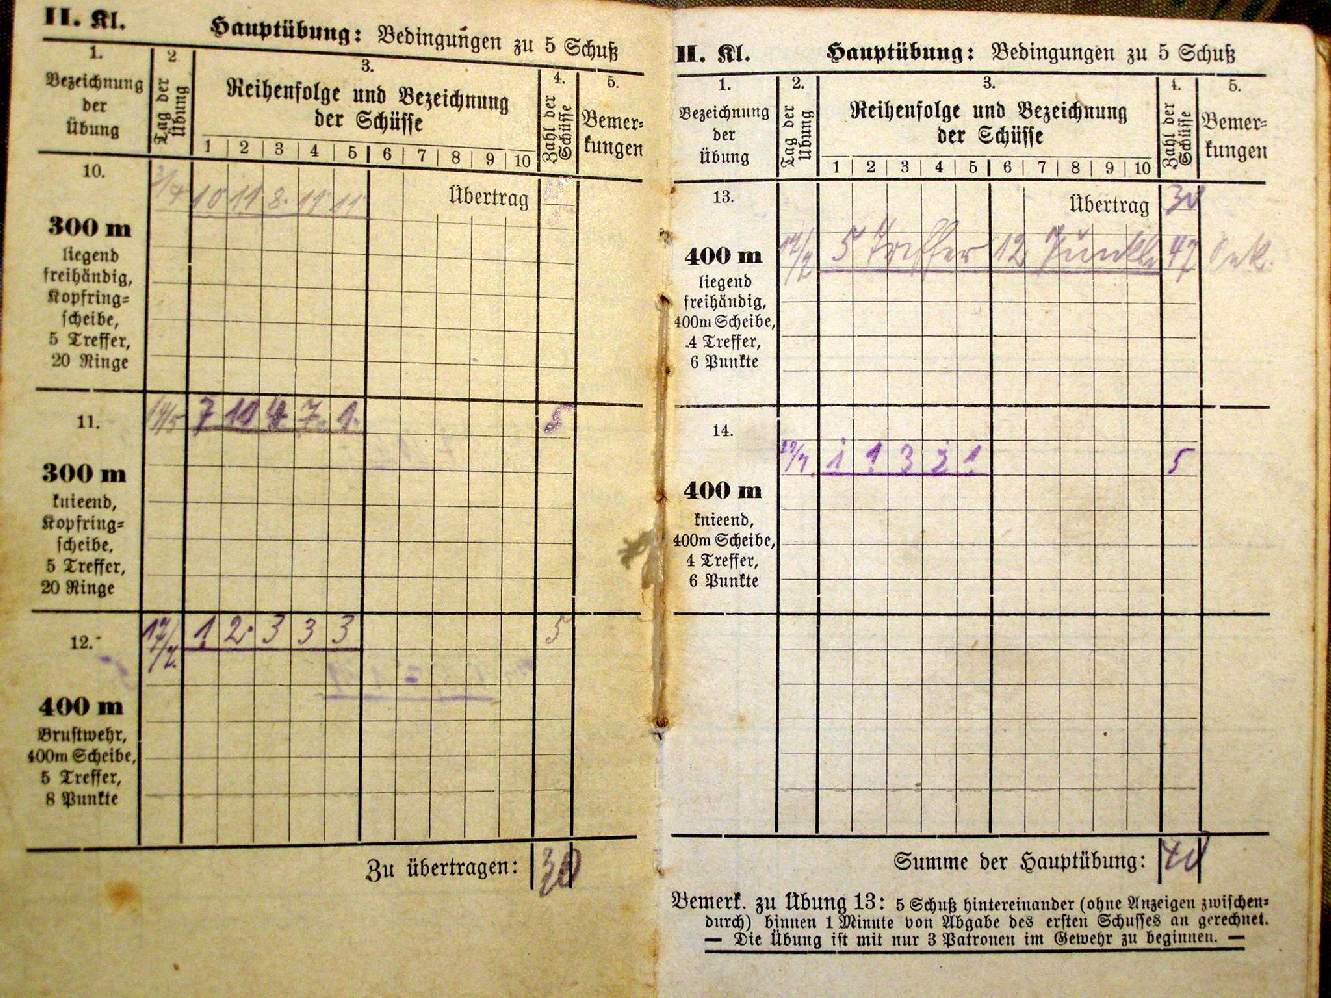 II. Kl.
Hauptübung: Bedingungen zu 5 Schuß
1.
Bezeichnung
der
Übung
2
Tag der
Übung
3.
Reihenfolge und Bezeichnung
der Schüsse
1 2 3 4 5 6 7 8 9 10
4.
Zahl der
Schüsse
5.
Bemer-
kungen
10.
Übertrag
10 11 8. 11 11
300 m
liegend
freihändig,
Kopfring-
scheibe,
5 Treffer,
20 Ringe
11.
7 10 4 7. 1.
5
300 m
knieend,
Kopfring-
scheibe,
5 Treffer,
20 Ringe
12.
1 2. 3 3 3
5
400 m
Brustwehr,
400m Scheibe,
5 Treffer,
8 Punkte
Zu übertragen: 30
II. Kl.
Hauptübung: Bedingungen zu 5 Schuß
1.
Bezeichnung
der
Übung
2.
Tag der
Übung
3.
Reihenfolge und Bezeichnung
der Schüsse
1 2 3 4 5 6 7 8 9 10
4.
Zahl der
Schüsse
5.
Bemer-
kungen
13.
Übertrag 30
5 Treffer 12 Punkte
400 m
liegend
freihändig,
400m Scheibe,
4 Treffer,
6 Punkte
14.
1 1 3 2 1
5
400 m
knieend,
400m Scheibe,
4 Treffer,
6 Punkte
Summe der Hauptübung: 40
Bemerk. zu Übung 13: 5 Schuß hintereinander (ohne Anzeigen zwischen-
durch) binnen 1 Minute von Abgabe des ersten Schusses an gerechnet.
— Die Übung ist mit nur 3 Patronen im Gewehr zu beginnen. —